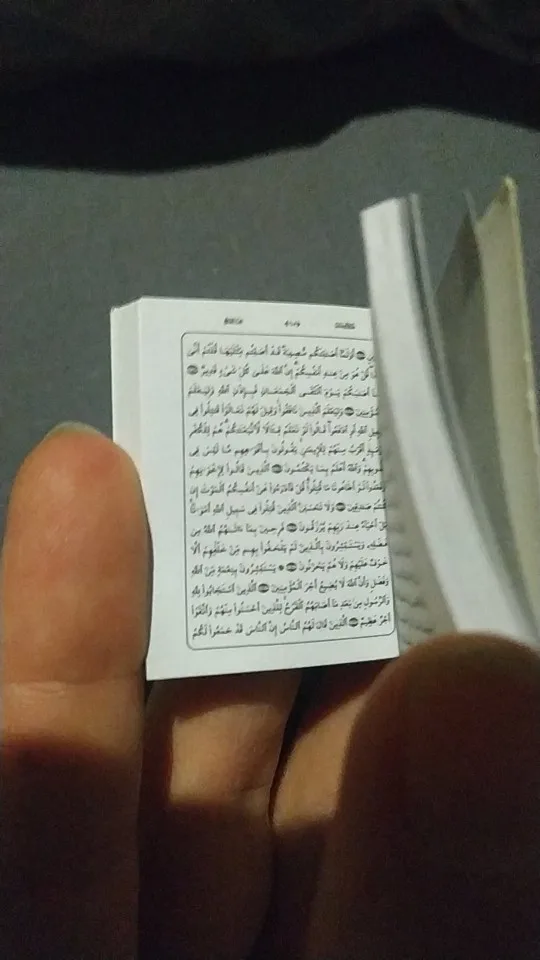 أَوَلَمَّا أَصَابَتْكُم مُّصِيبَةٌ قَدْ أَصَبْتُم مِّثْلَيْهَا قُلْتُمْ أَنَّىٰ
قُلْ هُوَ مِنْ عِندِ أَنفُسِكُمْ إِنَّ اللَّهَ عَلَىٰ كُلِّ شَيْءٍ قَدِيرٌ
أَصَابَكُمْ يَوْمَ الْتَقَى الْجَمْعَانِ فَبِإِذْنِ اللَّهِ وَلِيَعْلَمَ
وَلِيَعْلَمَ الَّذِينَ نَافَقُوا وَقِيلَ لَهُمْ تَعَالَوْا قَاتِلُوا فِي
اللَّهِ أَوِ ادْفَعُوا قَالُوا لَوْ نَعْلَمُ قِتَالًا لَّاتَّبَعْنَاكُمْ هُمْ لِلْكُفْرِ
أَقْرَبُ مِنْهُمْ لِلْإِيمَانِ يَقُولُونَ بِأَفْوَاهِهِم مَّا لَيْسَ فِي
قُلُوبِهِمْ وَاللَّهُ أَعْلَمُ بِمَا يَكْتُمُونَ الَّذِينَ قَالُوا لِإِخْوَانِهِمْ
وَقَعَدُوا لَوْ أَطَاعُونَا مَا قُتِلُوا قُلْ فَادْرَءُوا عَنْ أَنفُسِكُمُ الْمَوْتَ إِن
كُنتُمْ صَادِقِينَ وَلَا تَحْسَبَنَّ الَّذِينَ قُتِلُوا فِي سَبِيلِ اللَّهِ أَمْوَاتًا
بَلْ أَحْيَاءٌ عِندَ رَبِّهِمْ يُرْزَقُونَ فَرِحِينَ بِمَا آتَاهُمُ اللَّهُ مِن
فَضْلِهِ وَيَسْتَبْشِرُونَ بِالَّذِينَ لَمْ يَلْحَقُوا بِهِم مِّنْ خَلْفِهِمْ أَلَّا
خَوْفٌ عَلَيْهِمْ وَلَا هُمْ يَحْزَنُونَ يَسْتَبْشِرُونَ بِنِعْمَةٍ مِّنَ اللَّهِ
وَفَضْلٍ وَأَنَّ اللَّهَ لَا يُضِيعُ أَجْرَ الْمُؤْمِنِينَ الَّذِينَ اسْتَجَابُوا لِلَّهِ
وَالرَّسُولِ مِن بَعْدِ مَا أَصَابَهُمُ الْقَرْحُ لِلَّذِينَ أَحْسَنُوا مِنْهُمْ وَاتَّقَوْا
أَجْرٌ عَظِيمٌ الَّذِينَ قَالَ لَهُمُ النَّاسُ إِنَّ النَّاسَ قَدْ جَمَعُوا لَكُمْ